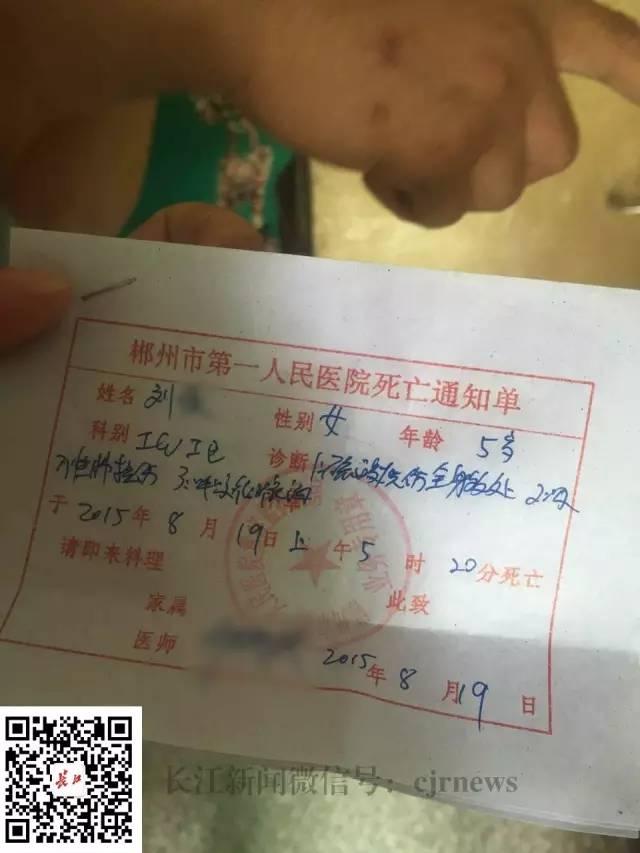 郴州市第一人民医院死亡通知单
姓名 刘 性别 女 年龄 5岁
科别 ICU 诊断 1: 烧伤全身多处 2:吸
3:呼吸
于 2015年 8月 19日 上午 5时 20分死亡
请即来料理 此致
家属
医师
2015年 8月 19日
长江
长江新闻微信号：cjrnews